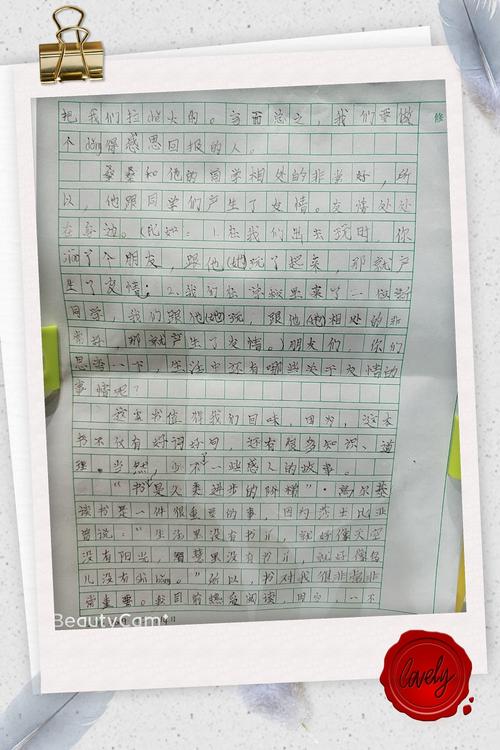 把我们拉火的。言而总之,我们要做
修
不dǒng得感恩回报的人。
桑桑和他的同学相处的非常好,所
以,他跟同学们产生了友情。友情处处
在身边。(比如:1.在我们出去玩时,你
了个朋友,跟他(她)玩了起来,那就产
生了友情;2.我们在学校里来了一位新
同学,我们跟他(她)玩,跟他(她)相处的非
常好,那就产生了友情。)朋友们,你们
思考一下,生活中还有哪些关于友情的
事情呢?
这本书值得我们回味,因为,这本
书不仅有好词好句,还有很多知识、道
理。当然,少不了一些感人的故事。
“书是人类进步的阶梯”。高尔基
读书是一件很重要的事,因为莎士比亚
曾说:“生活里没有书籍,就好像天空
没有阳光,智慧里没有书籍,就好像鸟
儿没有翅bǎng。”所以,书对我们非常非
常重要。我目前爱阅读,因为,一不
BeautyCam
lovely